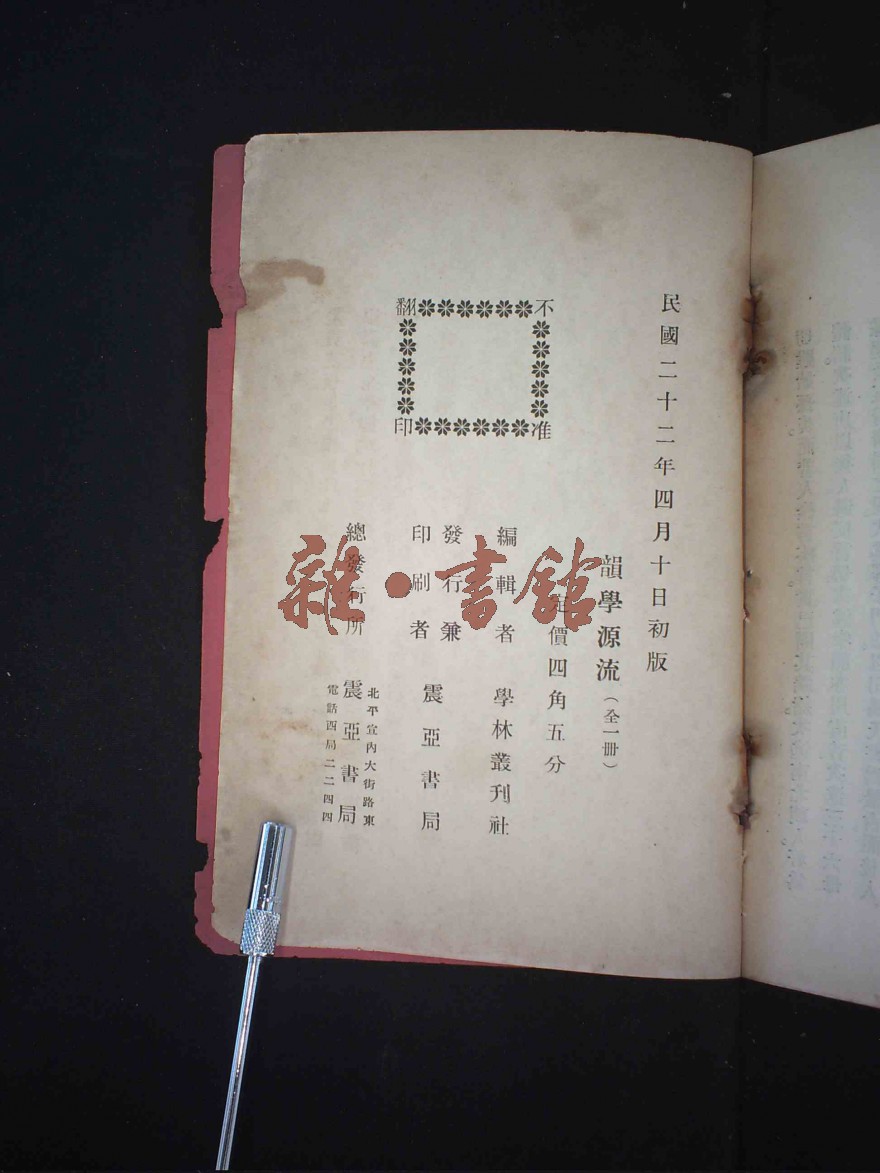 民國二十二年四月十日初版
韻學源流（全一冊）
定價四角五分
編輯者 學林叢刊社
發行兼
印刷者 震亞書局
總發行所 震亞書局
北平宣內大街路東
電話西局二二四四
不准翻印
雜·書館